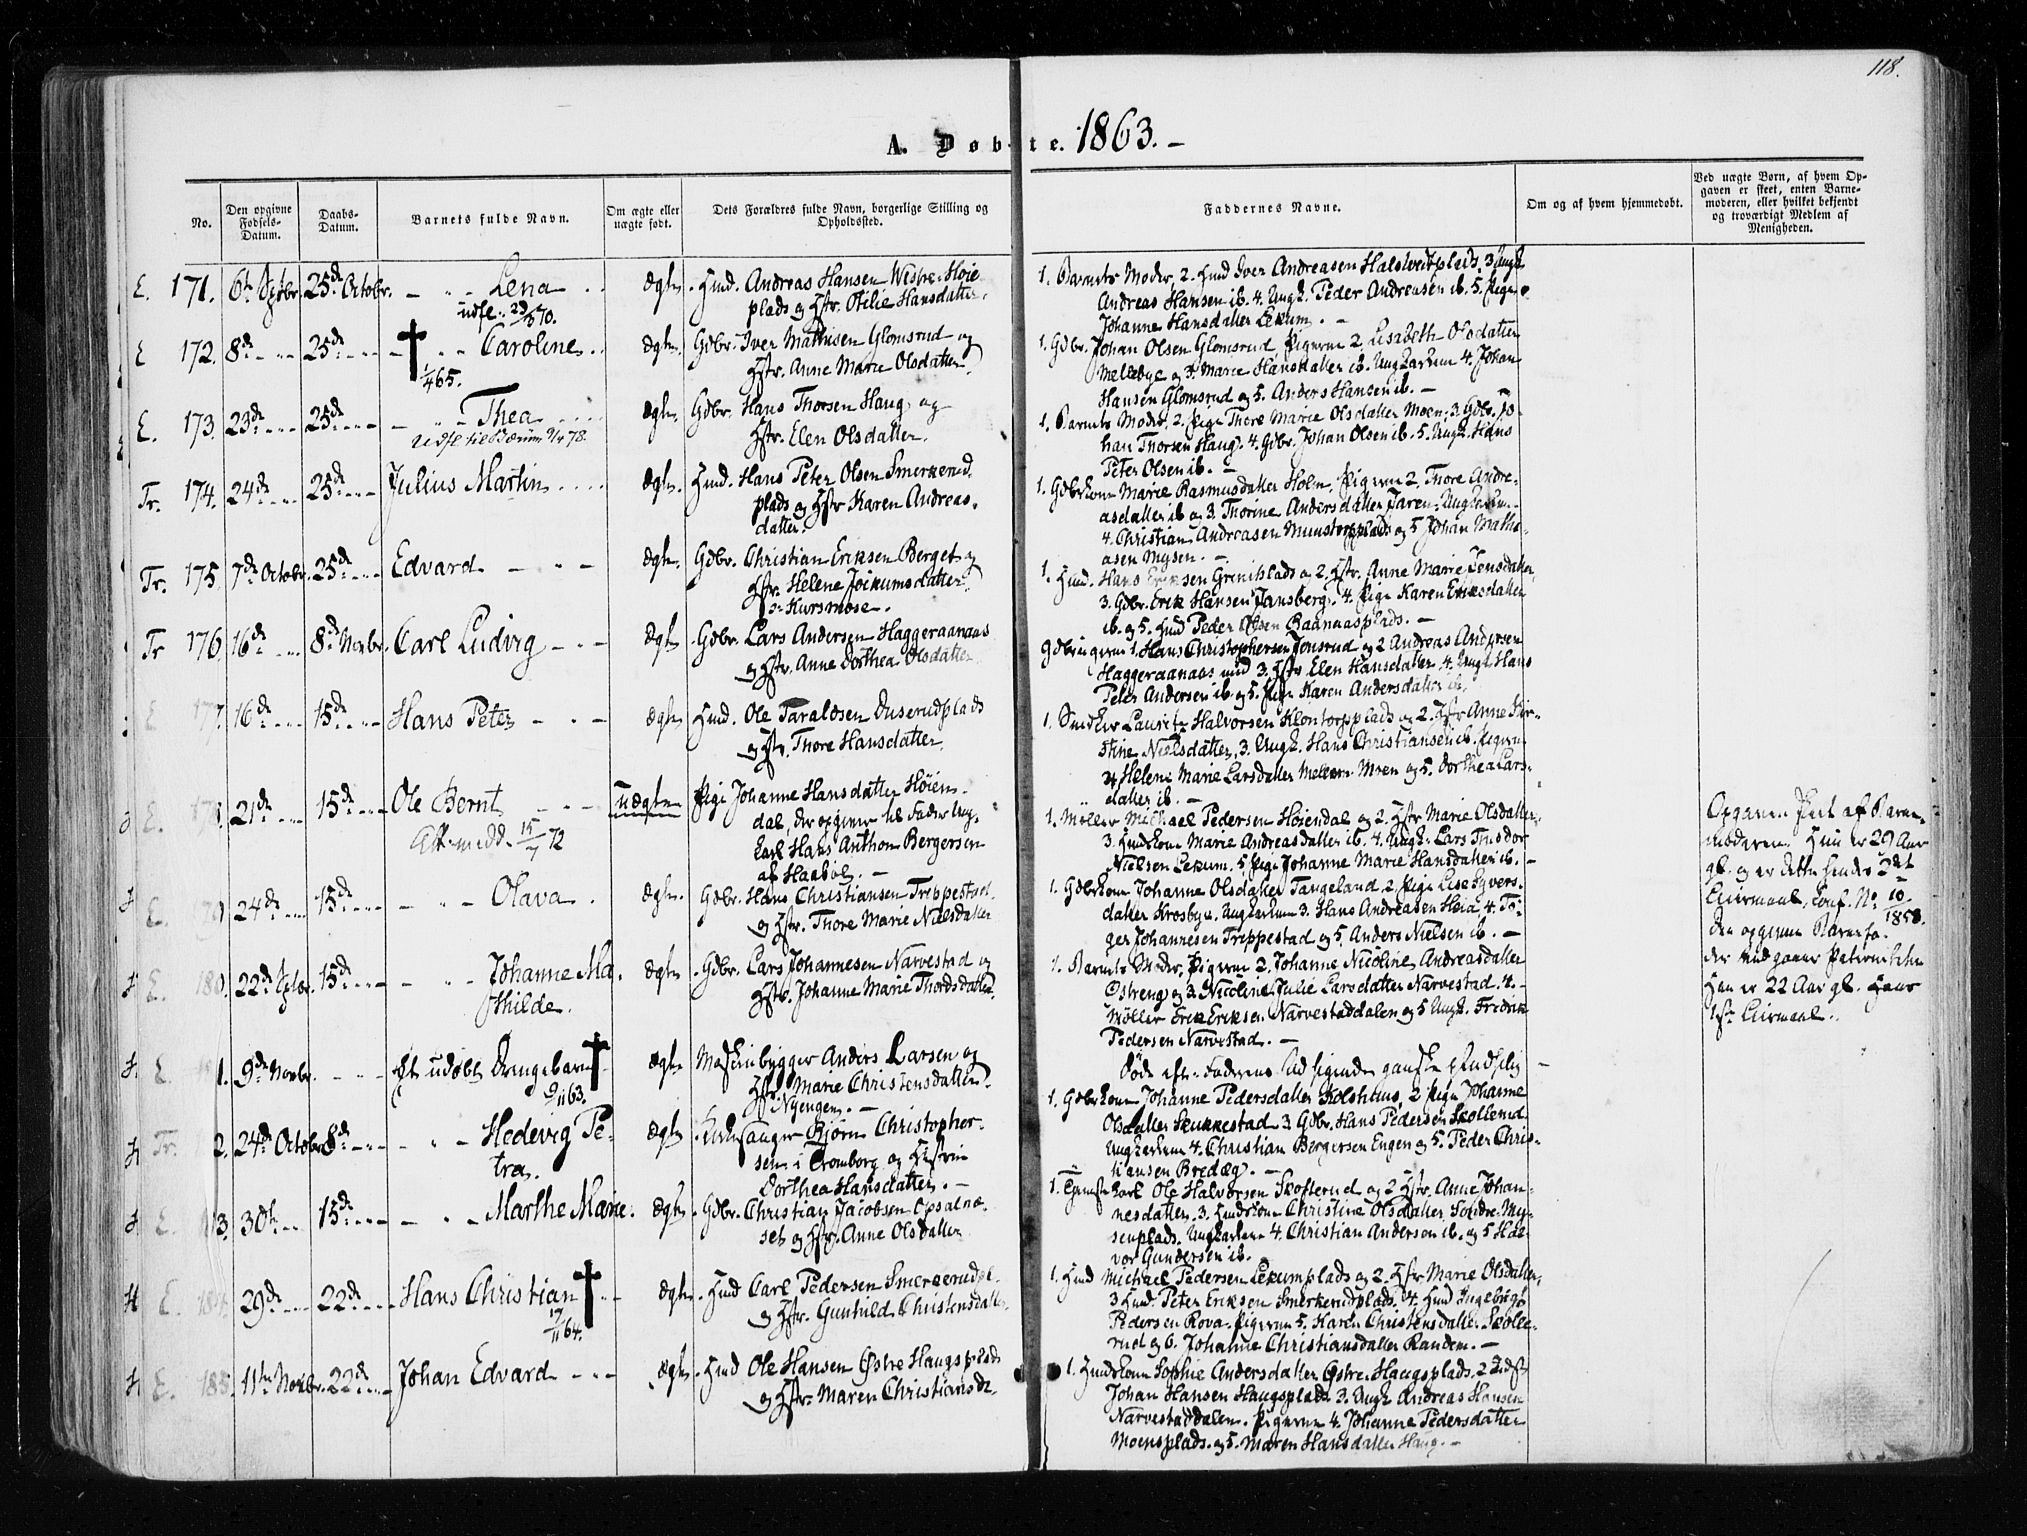 118.
A. Døbte. 1863. –
No.
Den opgivne Fødsels-Datum.
Daabs-Datum.
Barnets fulde Navn.
Om ægte eller uægte født.
Dets Forældres fulde Navn, borgerlige Stilling og Opholdssted.
Faddernes Navne.
Om og af hvem hjemmedøbt.
Ved uægte Børn, af hvem Opgaven er skeet, enten Barnemoderen, eller hvilket bekjendt og troværdigt Medlem af Menigheden.
E. 171. 25de Octobr. Lena
Ægte. Huusmd. Andreas Hansen Høieplads og Hstr. Otilie Hansdatter.
1. Barnets Moder, 2. Huusmd Iver Andreasen Halstvedtplads, 3 Ungk
Andreas Hansen ib. 4. Ungk. Peder Andreasen ib. 5. Pige
Johanne Hansdatter Lekum. –
E 172. 8de 25de Caroline
1/4 65.
Ægte. Gdbr. Iver Mathisen Glomsrud og
Hstr. Anne Marie Olsdatter.
1. Gdbr. Johan Olsen Glomsrud, Pigerne 2. Lisabeth Olsdatter
Mellebye og 3. Marie Hansdatter ib. Ungkarlene 4. Johan
Hansen Glomsrud og 5. Anders Hansen ib. –
E. 173. 23de 25de Thea
Udfl. til Bærum 78.
Ægte. Gdbr. Hans Thorsen Haug og
Hstr. Elen Olsdatter.
1. Barnets Moder, 2. Pige Thore Marie Olsdatter Moen. 3 Gdbr. Jo-
han Thorsen Haug. 4. Gdbr. Johan Olsen ib. 5. Ungk. Hans
Peter Olsen ib. –
Tr. 174. 24de 25de Julius Martin
Ægte. Huusmd. Hans Peter Olsen Smerkerud-
plads og Hstr Karen Andreas-
datter.
1. Gdbrkone Marie Rasmusdatter Holm. Pigerne 2. Thore Andre-
asdatter ib og 3. Thorine Andersdatter Jaren. Ungkarlene
4. Christian Andreasen Munstorpplads og 5 Johan Mathi-
asen Mysen. –
Tr. 175. 7de Octobr. 25de Edvard
Ægte. Gdbr. Christian Eriksen Berget og
Hstr. Helene Jockumsdatter
Kursmose.
1. Huusmd. Hans Eriksen Greniplads og 2. Hstr. Anne Marie Jensdatter,
3. Gdbr. Erik Hansen Jansberg. 4. Pige Karen Eriksdatter
ib. og 5. Huusmd Peder Olsen Raanaasplads. –
Tr 176. 16de 8de Novbr. Carl Ludvig
Ægte. Gdbr. Lars Andersen Haggeraanaas
og Hstr. Anne Dorthea Olsdatter
Gdbrugerne 1. Hans Christophersen Jonsrud og 2 Andreas Andersen
Haggeraanaas med 3. Hstr. Elen Hansdatter. 4. Ungk Hans
Peter Andersen ib og 5. Pige Karen Andersdatter ib.
E 177. 16de 15de Hans Peter
Ægte Huusmd. Ole Taraldsen Duserudplads
og Hstr. Thore Hansdatter.
1. Smeker Lauritz Halvorsen Klontorpplads og 2. Hstr Anne Kir-
stine Nielsdatter, 3. Ungk. Hans Christiansen ib. Pigerne
4 Helene Marie Larsdatter Moen og 5. Dorthea Lars-
datter ib. –
E. 178. 21de 15de Ole Bernt
Att. medd. 15/7 72
Uægte Pige Johanne Hansdatter Høien-
dal, der opgiver til Fader Ung-
karl Hans Anthon Bergersen
af Haabøl. –
1. Møller Michael Pedersen Høiendal og 2. Hstr Marie Olsdatter,
3. Huuskone Marie Andreasdatter ib. 4. Ungk. Lars Thisdor
Nielsen Lekum. 5. Pige Johanne Marie Hansdatter ib. –
Opgaven skeet af Barne-
moderen. Hun er 29 Aar
gl. og er dette hendes 2det
Leiermaal, conf. No. 10/1858.
Den opgivne Barnefa-
der vedgaaer Paterniteten
Han er 22 Aar gl. Hans
1ste Leiermaal.
E. 179. 24de 15de Olava
Ægte. Gdbr. Hans Christiansen Treppestad
og Hstr. Thore Marie Nielsdatter
1. Gdbrkone Johanne Olsdatter Tangeland, 2. Pige Lise Syvers-
datter Krosbye. Ungkarlene 3. Hans Andreasen Høia, 4. To-
ger Johannesen Treppestad og 5. Anders Nielsen ib. –
E. 180. 22de 15de Johanne Ma-
thilde.
Ægte Gdbr. Lars Johannesen Narvestad og
Hstr. Johanne Marie Thordsdatter.
1. Barnets Moder, Pigerne 2. Johanne Nicoline Andreasdatter
Østreng og 3. Nicoline Julie Larsdatter Narvestad. 4. –
Møller Erik Eriksen Narvestaddalen og 5 Ungk. Fredrik
Pedersen Narvestad. –
E. 1. 9de Novbr. Et udøbt Drengebarn
9/11 63.
Ægte Maskinbygger Anders Larsen og
Hstr. Marie Christensdatter
Nyengen. –
Døde efter Faderens Udsigende ganske
Tr. 2. 24de Octobr 8de Hedevig Pe-
tra.
Ægte Kirkesanger Bjørn Christopher-
sen i Tromborg og Hustru
Dorthea Hansdatter. –
1. Gdbrkone Johanne Pedersdatter Kolshuus, 2 Pige Johanne
Olsdatter Skukkestad 3 Gdbr. Hans Pedersen Skollerud
Ungkarlene 4. Christian Bergersen Engen og 5. Peder Chris-
tiansen Bredæg. –
E. 183. 30te 15de Marthe Marie.
Ægte. Gdbr. Christian Jacobsen Opsalnæ-
set og Hstr. Anne Olsdatter
1. Tjenestekarl Ole Halvorsen Skofterud og 2 Hstr. Anne Johan-
nesdatter. 3. Huuskone Christine Olsdatter Søndre My-
senplads. Ungkarlene 4. Christian Andersen ib. og 5 Hal-
vor Gundersen ib.
E. 184. 29de 22de Hans Christian
17/11 64.
Ægte. Huusmd Carl Pedersen Smerkerudpl.
og Hstr. Gunhild Christensdatter
1. Huusmd Michael Pedersen Lekumplads og 2. Hstr Marie Olsdatter,
3 Huusmd. Peter Eriksen Smerkerudplads. 4. Huusmd Ingebrigt
Pedersen Rova. Pigerne 5. Karen Christensdatter Skolle-
rud og 6. Johanne Christiansdatter Randem. –
E. 185. 11te Novbr. 22de Johan Edvard
Ægte. Huusmd Ole Hansen Østre Haugsplads
og Hstr. Maren Christiansd.
1. Huuskone Sophie Andersdatter Østre Haugsplads. 2
Johan Hansen Haugsplads 3. Ungk Andreas Hansen
Narvestaddalen. Pigerne 4. Johanne Pedersdatter
Moensplads. og 5. Maren Hansdatter Haug. –